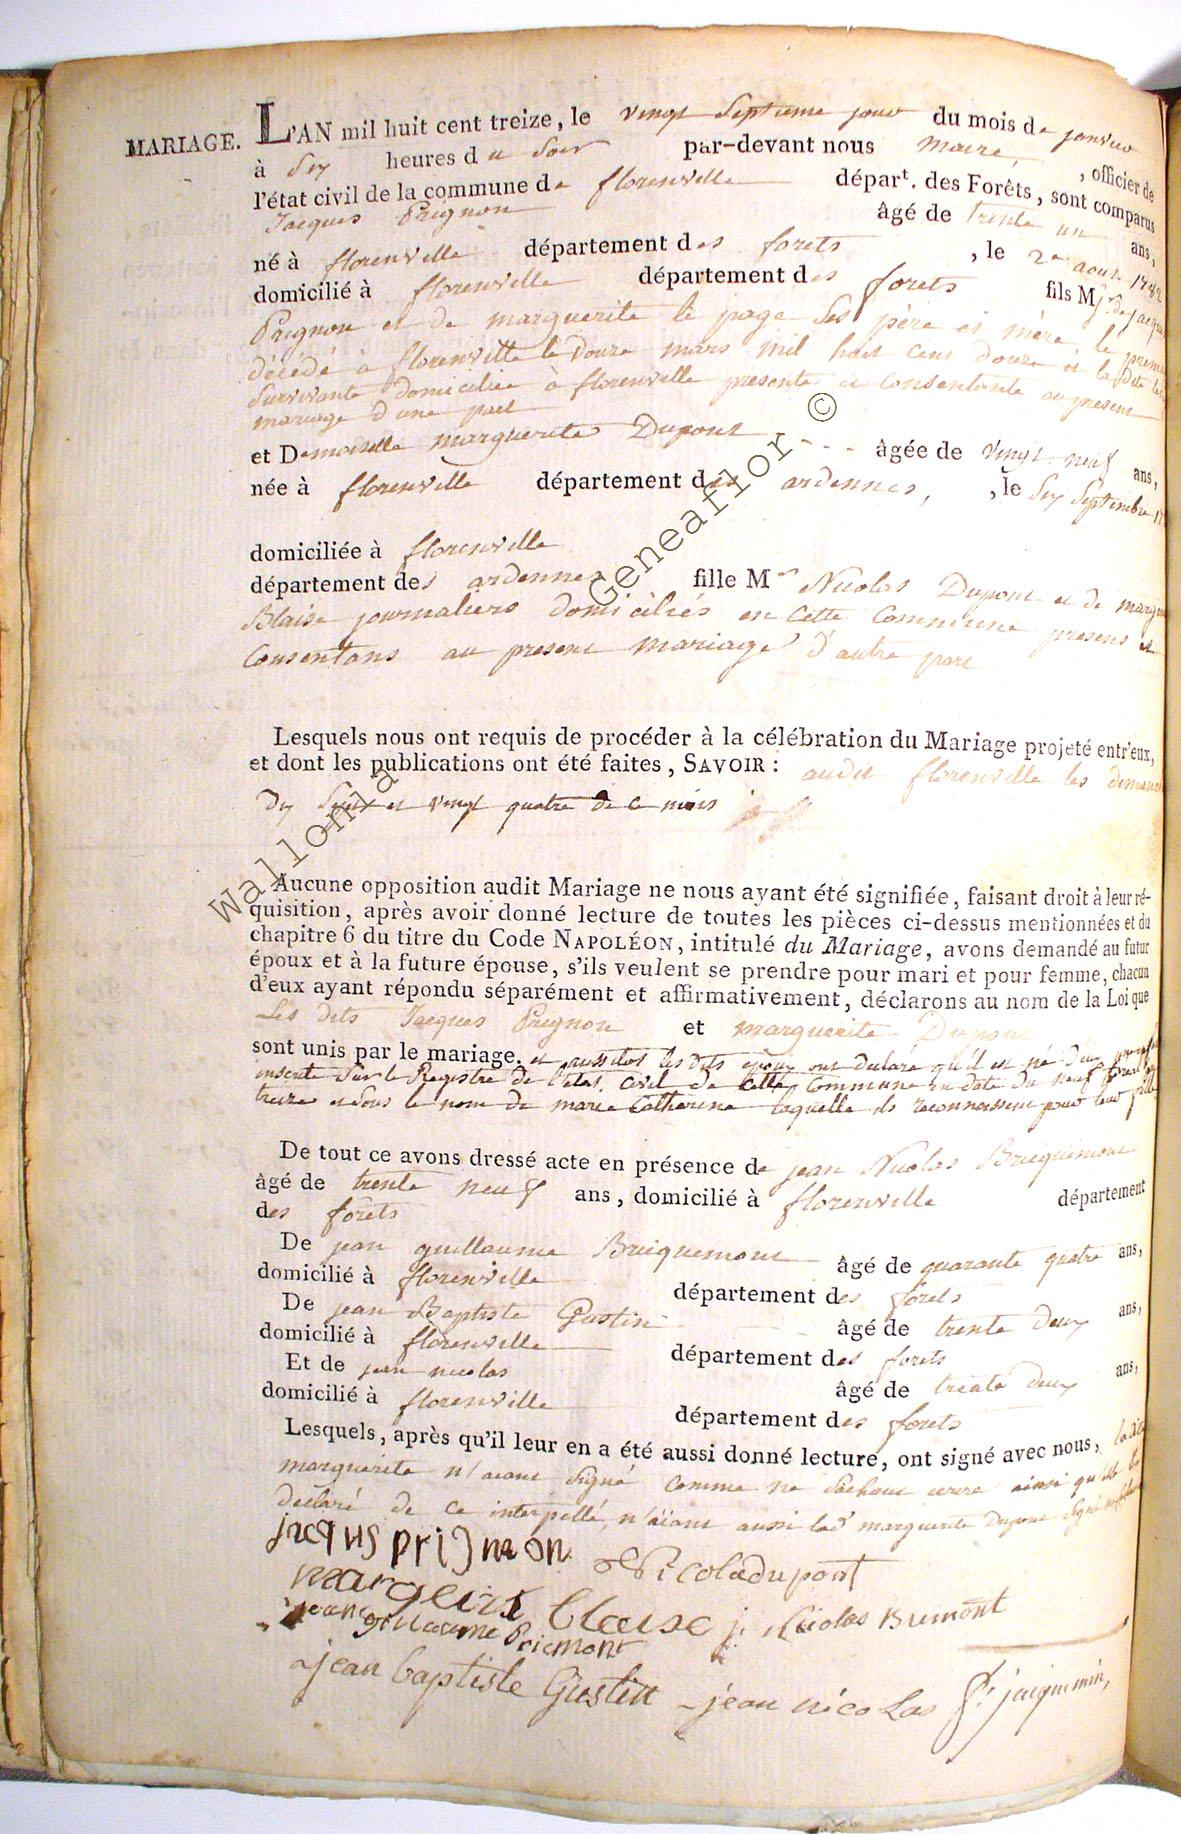 MARIAGE. L'AN mil huit cent treize, le vingt Septieme jour du mois de janvier
à Six heures du Soir par-devant nous maire, officier de
l'état civil de la commune de florenville départ. des Forêts, sont comparus
Jacques Prignon âgé de trente un ans,
né à florenville département des forets, le 2 aout 1782
domicilié à florenville département des forets fils Mjr de jacques
Prignon et de marguerite le page Ses père et mère, le premier
décédé à florenville le Douze mars mil huit cent Douze et la dite
Survivante domiciliée à florenville présente et Consentante au présent
mariage d'une part
et Demoiselle marguerite Dupont - - - âgée de vingt-neuf ans,
née à florenville département des ardennes, , le Six Septembre
domiciliée à florenville
département des ardennes fille Mre Nicolas Dupont et de
Blaise journaliers domiciliés en cette Commune présens et
Consentans au présent mariage d'autre part
Lesquels nous ont requis de procéder à la célébration du Mariage projeté entr'eux,
et dont les publications ont été faites, SAVOIR : audit florenville les dimanches
dix Sept et vingt quatre de ce mois
Aucune opposition audit Mariage ne nous ayant été signifiée, faisant droit à leur ré-
quisition, après avoir donné lecture de toutes les pièces ci-dessus mentionnées et du
chapitre 6 du titre du Code NAPOLÉON, intitulé du Mariage, avons demandé au futur
époux et à la future épouse, s'ils veulent se prendre pour mari et pour femme, chacun
d'eux ayant répondu séparément et affirmativement, déclarons au nom de la Loi que
Les dits Jacques Prignon et marguerite Dupont
sont unis par le mariage. et aussitot les dits époux ont declaré qu'il est né d'eux
inscrite Sur le Registre de l'état civil de cette Commune en date du neuf
treize et Sous le nom de marie Catherine laquelle ils reconnaissent pour leur fille
De tout ce avons dressé acte en présence de jean Nicolas Bricquemont
âgé de trente neuf ans, domicilié à florenville département
des forêts
De jean guillaume Bricquemont âgé de quarante quatre ans,
domicilié à florenville département des forêts
De jean Baptiste Gustin âgé de trente Deux ans,
domicilié à florenville département des forets
Et de jean nicolas âgé de trente deux ans,
domicilié à florenville département des forets
Lesquels, après qu'il leur en a été aussi donné lecture, ont signé avec nous, ladite
marguerite n'aiant Signé comme ne Sachant ecrire ainsi qu'elle l'a
déclaré de ce interpellé, n'aiant aussi lad. marguerite Dupont Signé
jacqus prijnon Nicola dupont
margerit Blaise j. Nicolas Brimont
jean gillaume Briemont
jean baptiste Gustin jean nicolas jacquemin,
Wallonia Geneaflor ©